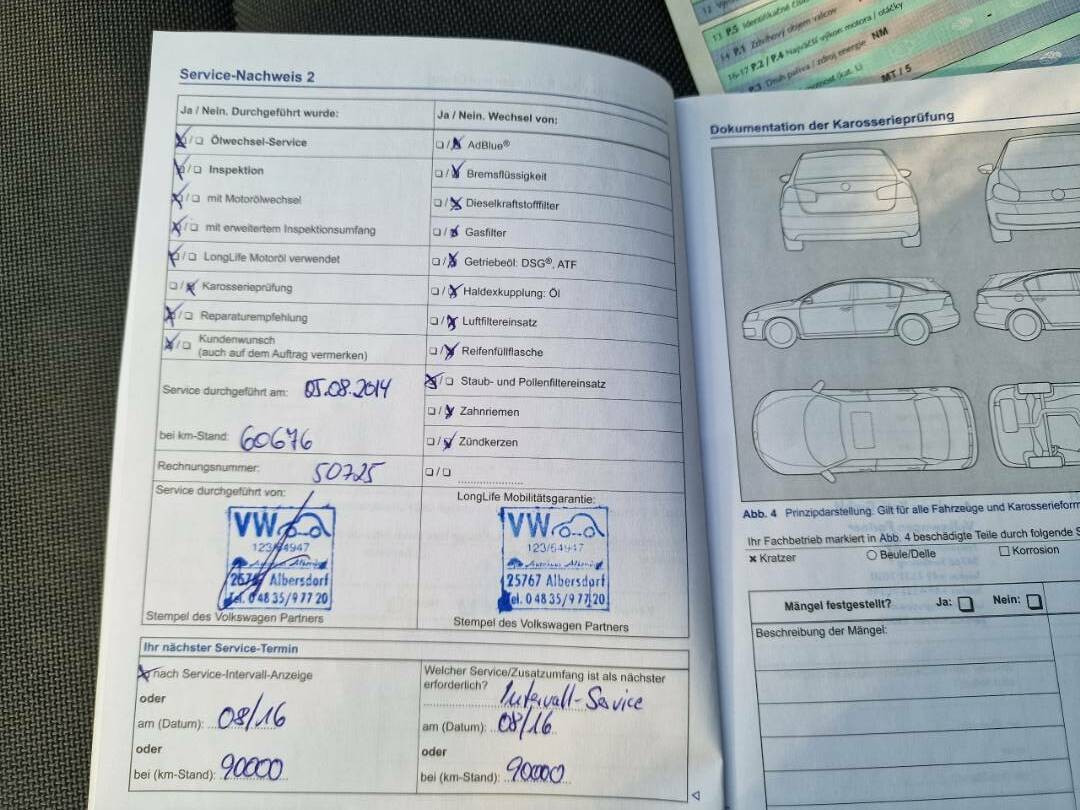 Service-Nachweis 2
Ja / Nein. Durchgeführt wurde:
☒/☐ Ölwechsel-Service
☒/☐ Inspektion
☒/☐ mit Motorölwechsel
☒/☐ mit erweitertem Inspektionsumfang
☒/☐ LongLife Motoröl verwendet
☐/☒ Karosserieprüfung
☒/☐ Reparaturempfehlung
☒/☐ Kundenwunsch
(auch auf dem Auftrag vermerken)
Service durchgeführt am: 05.08.2014
bei km-Stand: 60676
Rechnungsnummer: 50725
Ja / Nein. Wechsel von:
☐/☒ AdBlue®
☐/☒ Bremsflüssigkeit
☐/☒ Dieselkraftstofffilter
☐/☒ Gasfilter
☐/☒ Getriebeöl: DSG®, ATF
☐/☒ Haldexkupplung: Öl
☐/☒ Luftfiltereinsatz
☐/☒ Reifenfüllflasche
☒/☐ Staub- und Pollenfiltereinsatz
☐/☒ Zahnriemen
☐/☒ Zündkerzen
☐/☐
Service durchgeführt von:
VW
123/64947
25767 Albersdorf
Tel. 0 48 35/9 77 20
Stempel des Volkswagen Partners
LongLife Mobilitätsgarantie:
VW
123/64947
25767 Albersdorf
Tel. 0 48 35/9 77 20
Stempel des Volkswagen Partners
Ihr nächster Service-Termin
☒ nach Service-Intervall-Anzeige
oder
am (Datum): 08/16
oder
bei (km-Stand): 90000
Welcher Service/Zusatzumfang ist als nächster
erforderlich? Intervall-Service
am (Datum): 08/16
oder
bei (km-Stand): 90000
Dokumentation der Karosserieprüfung
Abb. 4 Prinzipdarstellung. Gilt für alle Fahrzeuge und Karosserieform
Ihr Fachbetrieb markiert in Abb. 4 beschädigte Teile durch folgende S
× Kratzer
○ Beule/Delle
☐ Korrosion
Mängel festgestellt? Ja: ☐ Nein: ☐
Beschreibung der Mängel:
13 P.5 Identifikačné
14 P.1 Zdvihový objem valcov
16-17 P.2 / P.4 Najväčší výkon motora / otáčky
P.3 Druh paliva / zdroj energie NM
MT / 5